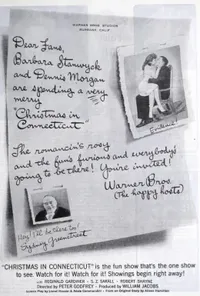 WARNER BROS. STUDIOS
BURBANK, CALIF.
Dear Fans,
Barbara Stanwyck
and Dennis Morgan
are spending a very
merry
"Christmas in
Connecticut"
The romancin's rosy
and the fun's furious and everybody's
going to be there! You're invited!
Warner Bros.
(The happy hosts)
Hey! I'll be there too
Sydney Greenstreet
"CHRISTMAS IN CONNECTICUT" is the fun show that's the one show
to see. Watch for it! Watch for it! Showings begin right away!
with REGINALD GARDINER · S. Z. SAKALL · ROBERT SHAYNE
Directed by PETER GODFREY · Produced by WILLIAM JACOBS